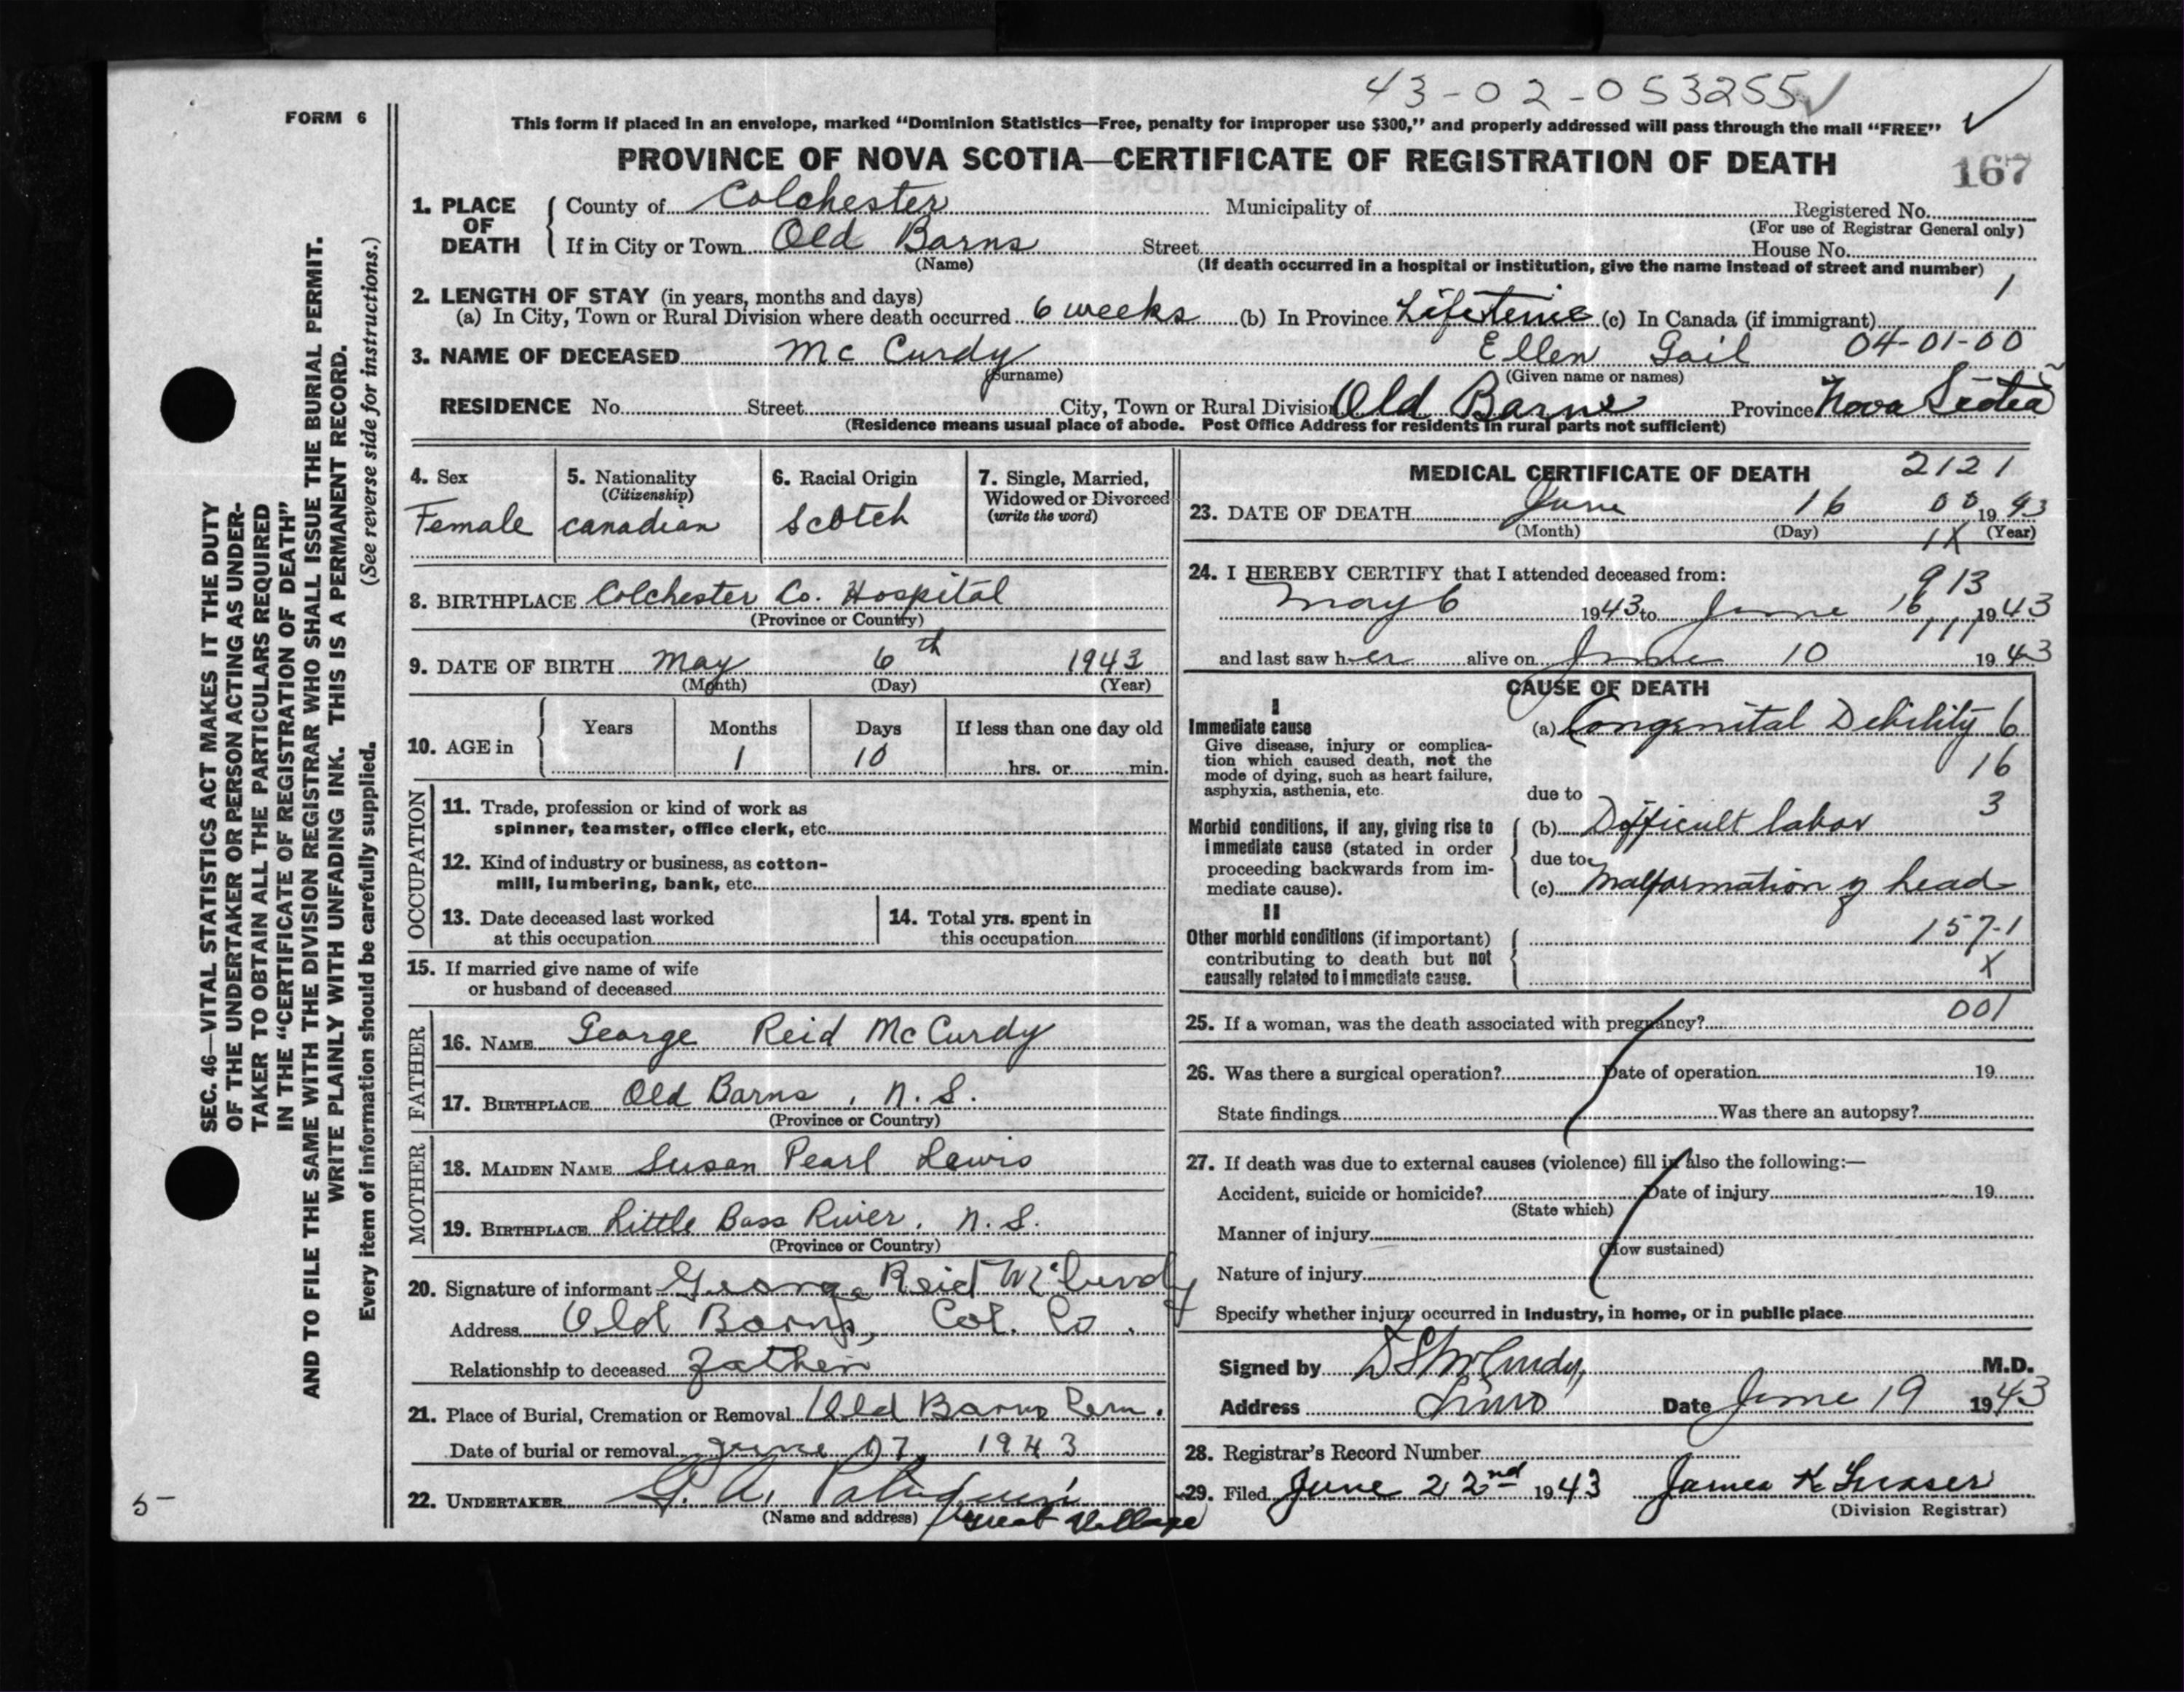 43-02-053255 ✓
FORM 6
This form if placed in an envelope, marked “Dominion Statistics—Free, penalty for improper use $300,” and properly addressed will pass through the mail “FREE” ✓
PROVINCE OF NOVA SCOTIA—CERTIFICATE OF REGISTRATION OF DEATH
167
1. PLACE OF DEATH
County of Colchester Municipality of Registered No.
(For use of Registrar General only)
If in City or Town Old Barns Street House No.
(Name) (If death occurred in a hospital or institution, give the name instead of street and number)
1
2. LENGTH OF STAY (in years, months and days)
(a) In City, Town or Rural Division where death occurred 6 weeks (b) In Province Lifetime (c) In Canada (if immigrant)
3. NAME OF DECEASED Mc Curdy Ellen Gail 04-01-00
(Surname) (Given name or names)
RESIDENCE No. Street City, Town or Rural Division Old Barns Province Nova Scotia
(Residence means usual place of abode. Post Office Address for residents in rural parts not sufficient)
4. Sex
Female
5. Nationality
(Citizenship)
Canadian
6. Racial Origin
Scotch
7. Single, Married,
Widowed or Divorced
(write the word)
8. BIRTHPLACE Colchester Co. Hospital
(Province or Country)
9. DATE OF BIRTH May 6th 1943
(Month) (Day) (Year)
10. AGE in
Years Months Days If less than one day old
1 10 hrs. or min.
OCCUPATION
11. Trade, profession or kind of work as
spinner, teamster, office clerk, etc.
12. Kind of industry or business, as cotton-
mill, lumbering, bank, etc.
13. Date deceased last worked
at this occupation
14. Total yrs. spent in
this occupation
15. If married give name of wife
or husband of deceased
FATHER
16. NAME George Reid McCurdy
17. BIRTHPLACE Old Barns, N.S.
(Province or Country)
MOTHER
18. MAIDEN NAME Susan Pearl Lewis
19. BIRTHPLACE Little Bass River, N.S.
(Province or Country)
20. Signature of informant George Reid McCurdy
Address Old Barns, Col. Co.
Relationship to deceased Father
21. Place of Burial, Cremation or Removal Old Barns Cem.
Date of burial or removal June 17, 1943
22. UNDERTAKER G. A.
(Name and address) Great Village
MEDICAL CERTIFICATE OF DEATH 2121
23. DATE OF DEATH June 16 00 1943
(Month) (Day) 1X (Year)
24. I HEREBY CERTIFY that I attended deceased from:
913
May 6 1943 to June 16 1943
111
and last saw her alive on June 10 1943
CAUSE OF DEATH
I
Immediate cause
Give disease, injury or complica-
tion which caused death, not the
mode of dying, such as heart failure,
asphyxia, asthenia, etc.
(a) Congenital Debility 6
16
due to
3
Morbid conditions, if any, giving rise to
immediate cause (stated in order
proceeding backwards from im-
mediate cause).
(b) Difficult labor
due to
(c) Malformation of head
II
Other morbid conditions (if important)
contributing to death but not
causally related to immediate cause.
157-1
X
001
25. If a woman, was the death associated with pregnancy?
26. Was there a surgical operation? Date of operation 19
State findings Was there an autopsy?
27. If death was due to external causes (violence) fill in also the following:—
Accident, suicide or homicide? Date of injury 19
(State which)
Manner of injury
(How sustained)
Nature of injury
Specify whether injury occurred in industry, in home, or in public place
Signed by D S McCurdy, M.D.
Address Truro Date June 19 1943
28. Registrar's Record Number
29. Filed June 22nd 1943 James K Fraser
(Division Registrar)
SEC. 46—VITAL STATISTICS ACT MAKES IT THE DUTY
OF THE UNDERTAKER OR PERSON ACTING AS UNDER-
TAKER TO OBTAIN ALL THE PARTICULARS REQUIRED
IN THE “CERTIFICATE OF REGISTRATION OF DEATH”
AND TO FILE THE SAME WITH THE DIVISION REGISTRAR WHO SHALL ISSUE THE BURIAL PERMIT.
WRITE PLAINLY WITH UNFADING INK. THIS IS A PERMANENT RECORD.
Every item of information should be carefully supplied. (See reverse side for instructions.)
5-